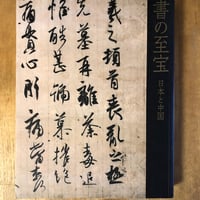 書の至宝
日本と中国
羲之頓首喪亂之極
先墓再離荼毒追
惟酷甚號慕摧絶
痛貫心肝痛當奈